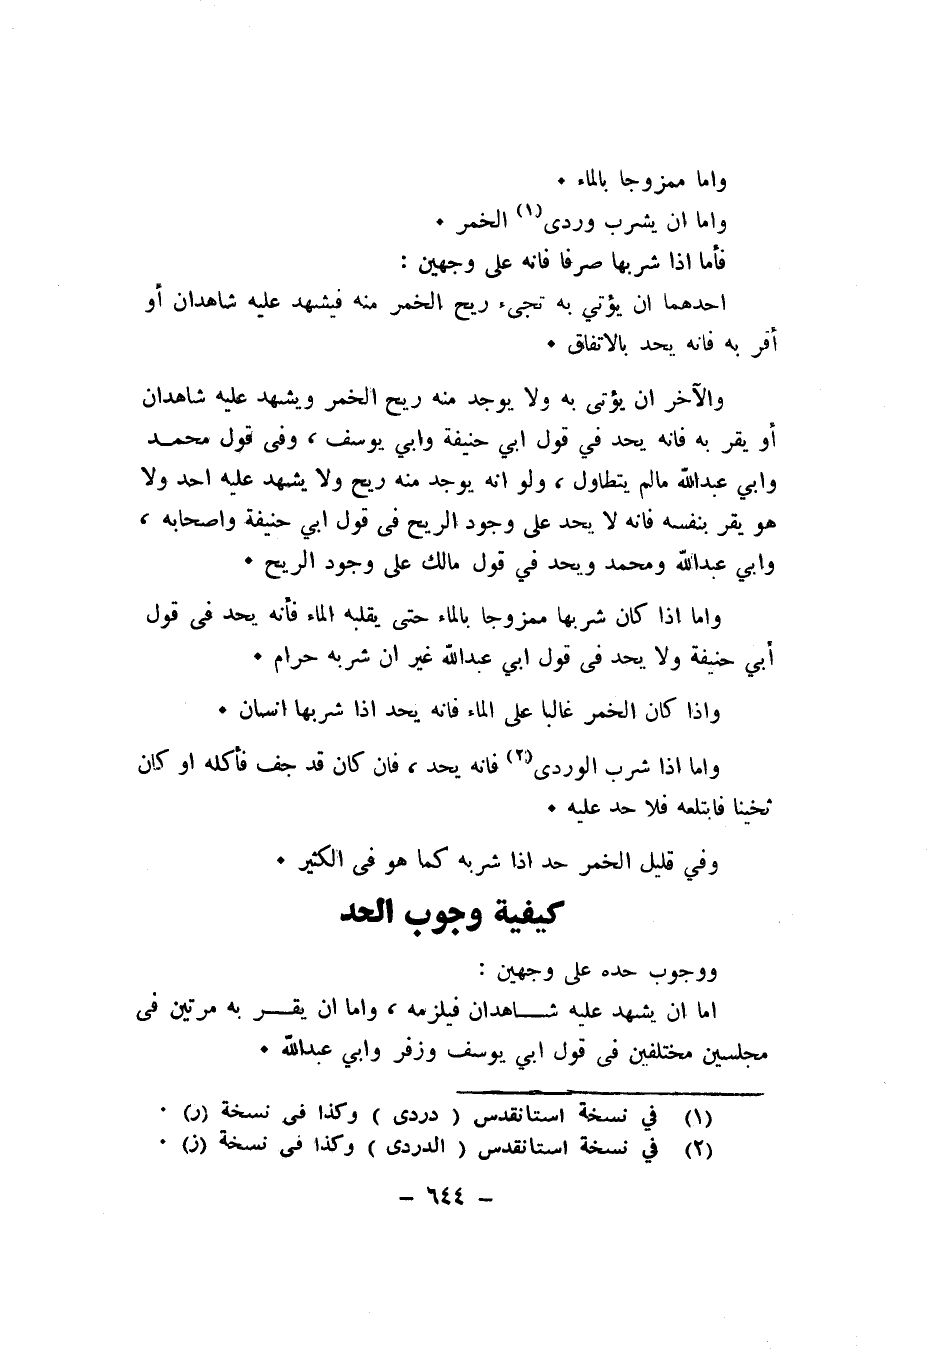 واما ممزوجا بالماء ٠
واما ان يشرب وردى(١) الخمر ٠
فأما اذا شربها صرفا فانه على وجهين :
احدهما ان يؤتي به تجىء ريح الخمر منه فيشهد عليه شاهدان أو
أقر به فانه يحد بالاتفاق ٠
والآخر ان يؤتى به ولا يوجد منه ريح الخمر ويشهد عليه شاهدان
أو يقر به فانه يحد في قول ابي حنيفة وابي يوسف ، وفى قول محمـد
وابي عبدالله مالم يتطاول ، ولو انه يوجد منه ريح ولا يشهد عليه احد ولا
هو يقر بنفسه فانه لا يحد على وجود الريح فى قول ابي حنيفة واصحابه ،
وابي عبدالله ومحمد ويحد في قول مالك على وجود الريح ٠
واما اذا كان شربها ممزوجا بالماء حتى يقلبه الماء فأنه يحد فى قول
أبي حنيفة ولا يحد فى قول ابي عبدالله غير ان شربه حرام ٠
واذا كان الخمر غالبا على الماء فانه يحد اذا شربها انسان ٠
واما اذا شرب الوردى(٢) فانه يحد ، فان كان قد جف فأكله او كان
ثخينا فابتلعه فلا حد عليه ٠
وفي قليل الخمر حد اذا شربه كما هو فى الكثير ٠
كيفية وجوب الحد
ووجوب حده على وجهين :
اما ان يشهد عليه شـــاهدان فيلزمه ، واما ان يقــر به مرتين فى
مجلسين مختلفين فى قول ابي يوسف وزفر وابي عبدالله ٠
(١) في نسخة استانقدس ( دردى ) وكذا فى نسخة (ر) ٠
(٢) في نسخة استانقدس ( الدردى ) وكذا فى نسخة (ز) ٠
– ٦٤٤ –